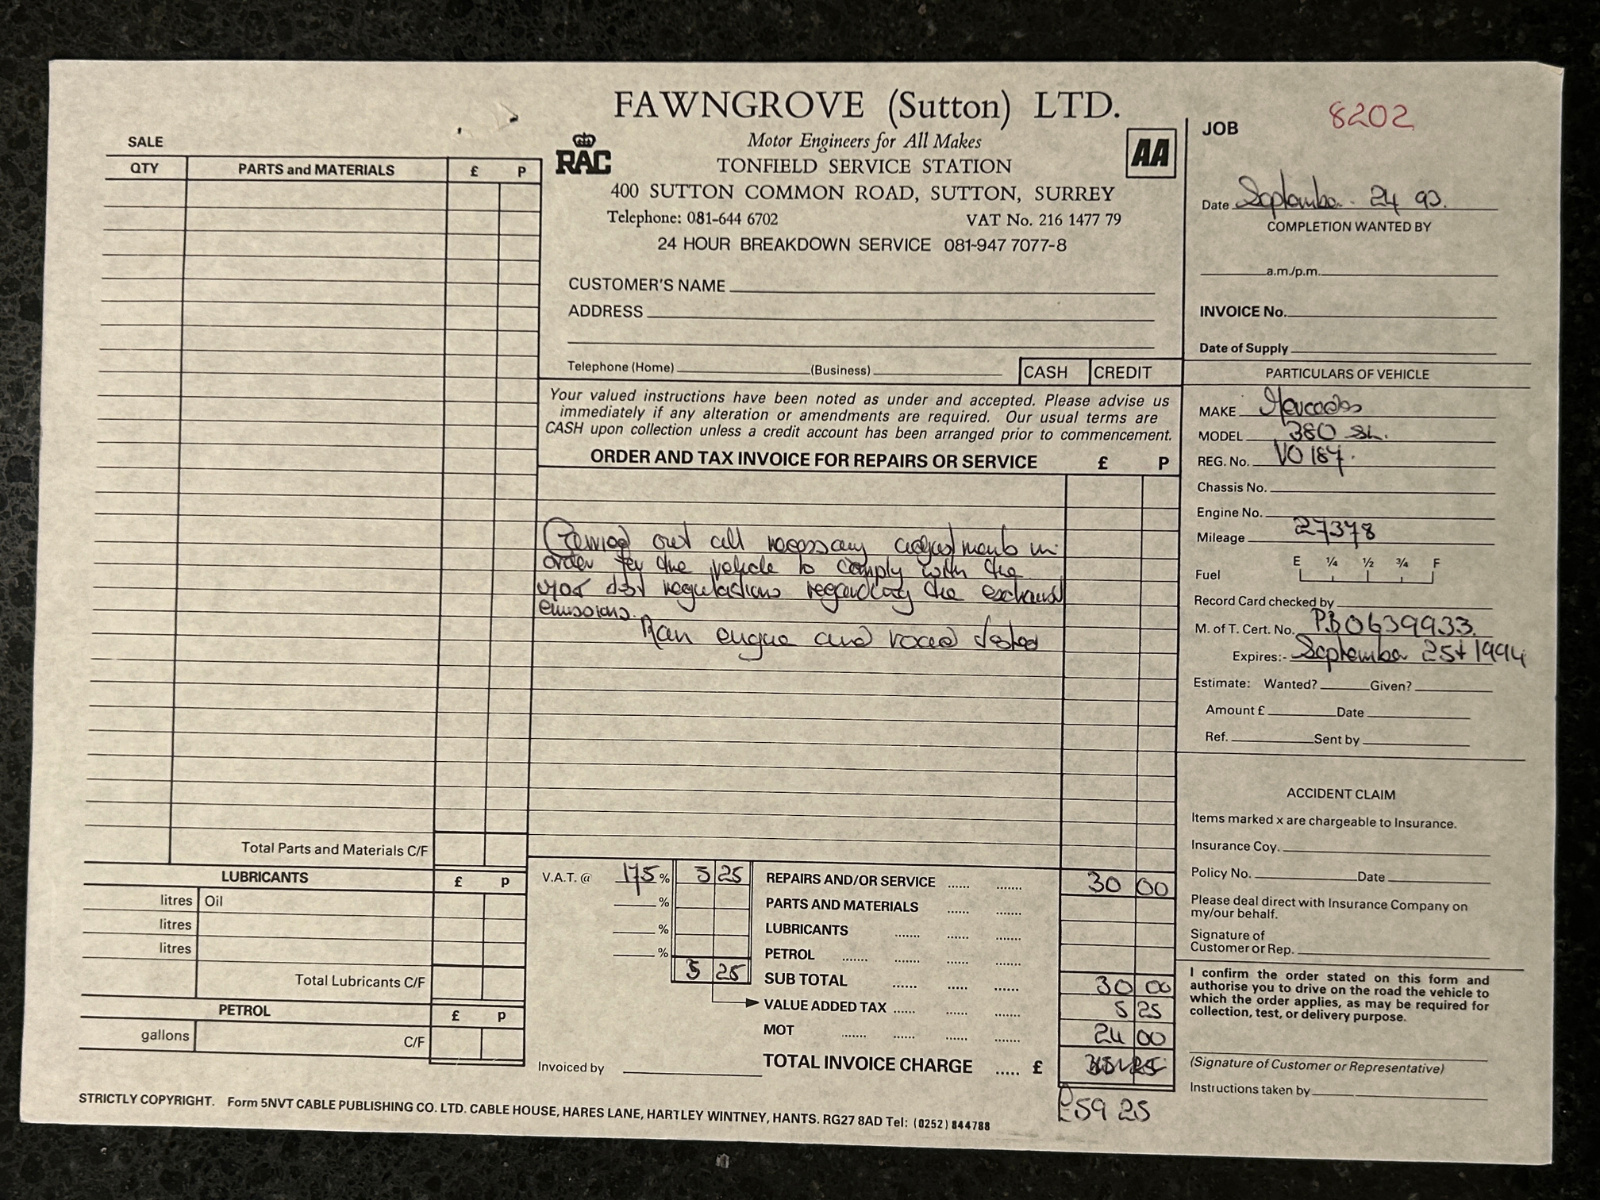 FAWNGROVE (Sutton) LTD.
Motor Engineers for All Makes
RAC
AA
TONFIELD SERVICE STATION
400 SUTTON COMMON ROAD, SUTTON, SURREY
Telephone: 081-644 6702 VAT No. 216 1477 79
24 HOUR BREAKDOWN SERVICE 081-947 7077-8
CUSTOMER'S NAME
ADDRESS
Telephone (Home) (Business) CASH CREDIT
Your valued instructions have been noted as under and accepted. Please advise us
immediately if any alteration or amendments are required. Our usual terms are
CASH upon collection unless a credit account has been arranged prior to commencement.
ORDER AND TAX INVOICE FOR REPAIRS OR SERVICE £ P
Carried out all necessary adjustments in
order for the vehicle to comply with the
mot test regulations regarding the exhaust
emissions.
Ran engine and road tested
SALE
QTY PARTS and MATERIALS £ P
Total Parts and Materials C/F
LUBRICANTS £ P
litres Oil
litres
litres
Total Lubricants C/F
PETROL £ P
gallons C/F
V.A.T. @ 17.5 % 5 25
%
%
%
5 25
REPAIRS AND/OR SERVICE ...... ....... 30 00
PARTS AND MATERIALS ...... ......
LUBRICANTS ....... ...... ......
PETROL ....... ...... ......
SUB TOTAL ...... ...... ...... 30 00
VALUE ADDED TAX ...... ...... ...... 5 25
MOT ...... ...... ...... 24 00
TOTAL INVOICE CHARGE ..... £
£59 25
Invoiced by
JOB 8202
Date September 24 93.
COMPLETION WANTED BY
a.m./p.m.
INVOICE No.
Date of Supply
PARTICULARS OF VEHICLE
MAKE Mercedes
MODEL 380 SL.
REG. No. VO 187.
Chassis No.
Engine No.
Mileage 27378
Fuel E ¼ ½ ¾ F
Record Card checked by
M. of T. Cert. No. PB0639933
Expires:- September 25t 1994
Estimate: Wanted? Given?
Amount £ Date
Ref. Sent by
ACCIDENT CLAIM
Items marked x are chargeable to Insurance.
Insurance Coy.
Policy No. Date
Please deal direct with Insurance Company on
my/our behalf.
Signature of
Customer or Rep.
I confirm the order stated on this form and
authorise you to drive on the road the vehicle to
which the order applies, as may be required for
collection, test, or delivery purpose.
(Signature of Customer or Representative)
Instructions taken by
STRICTLY COPYRIGHT. Form 5NVT CABLE PUBLISHING CO. LTD. CABLE HOUSE, HARES LANE, HARTLEY WINTNEY, HANTS. RG27 8AD Tel: (0252) 844788